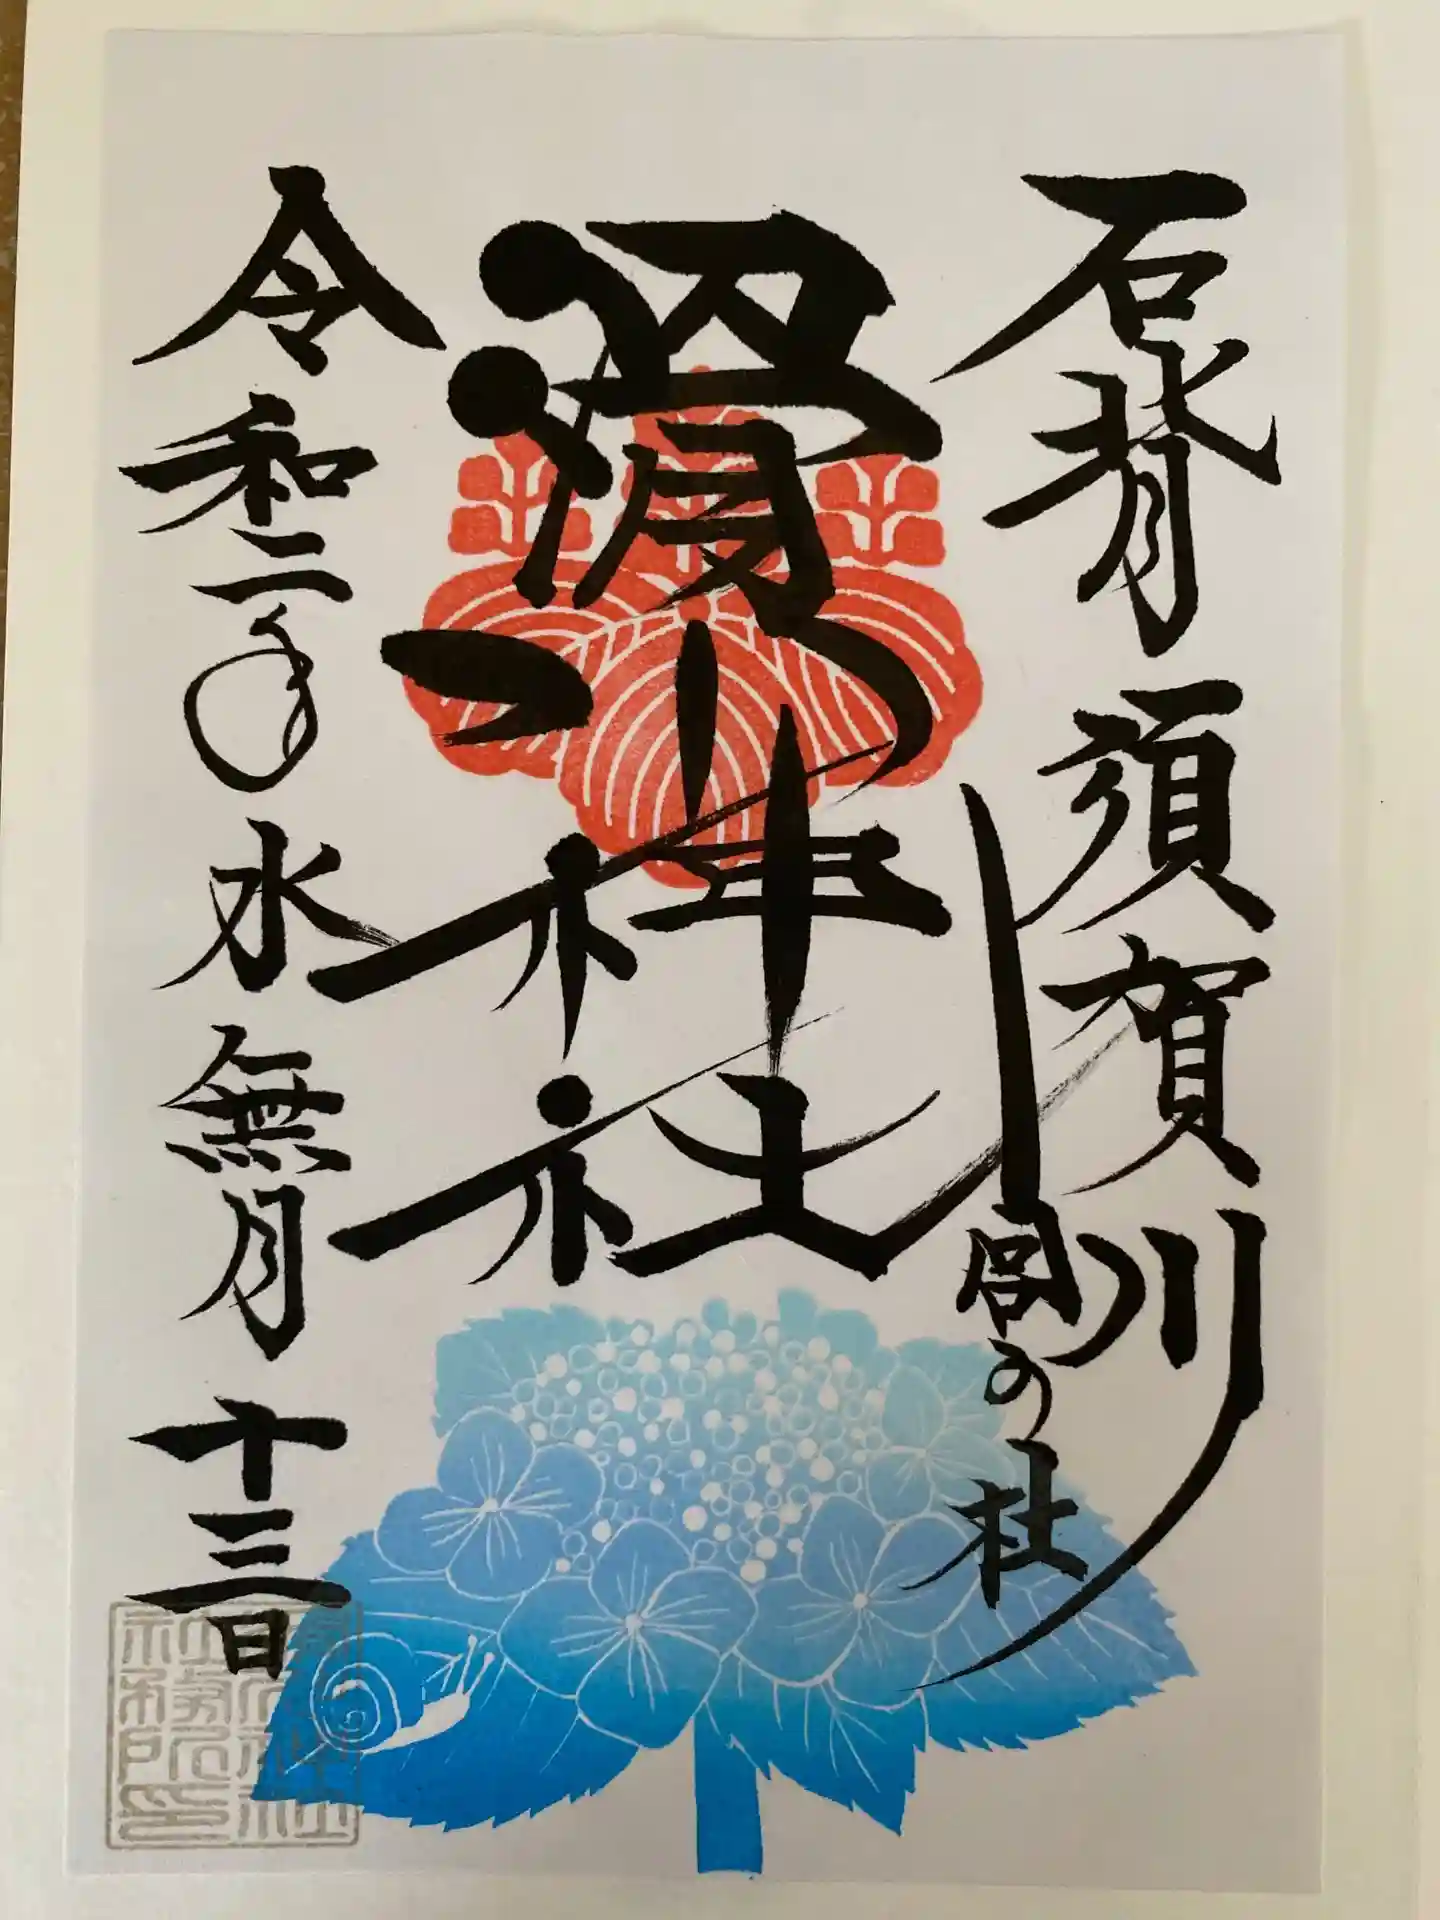 石背 須賀川
の杜
滑川神社
令和二年水無月十三日
滑川神社
社務所印